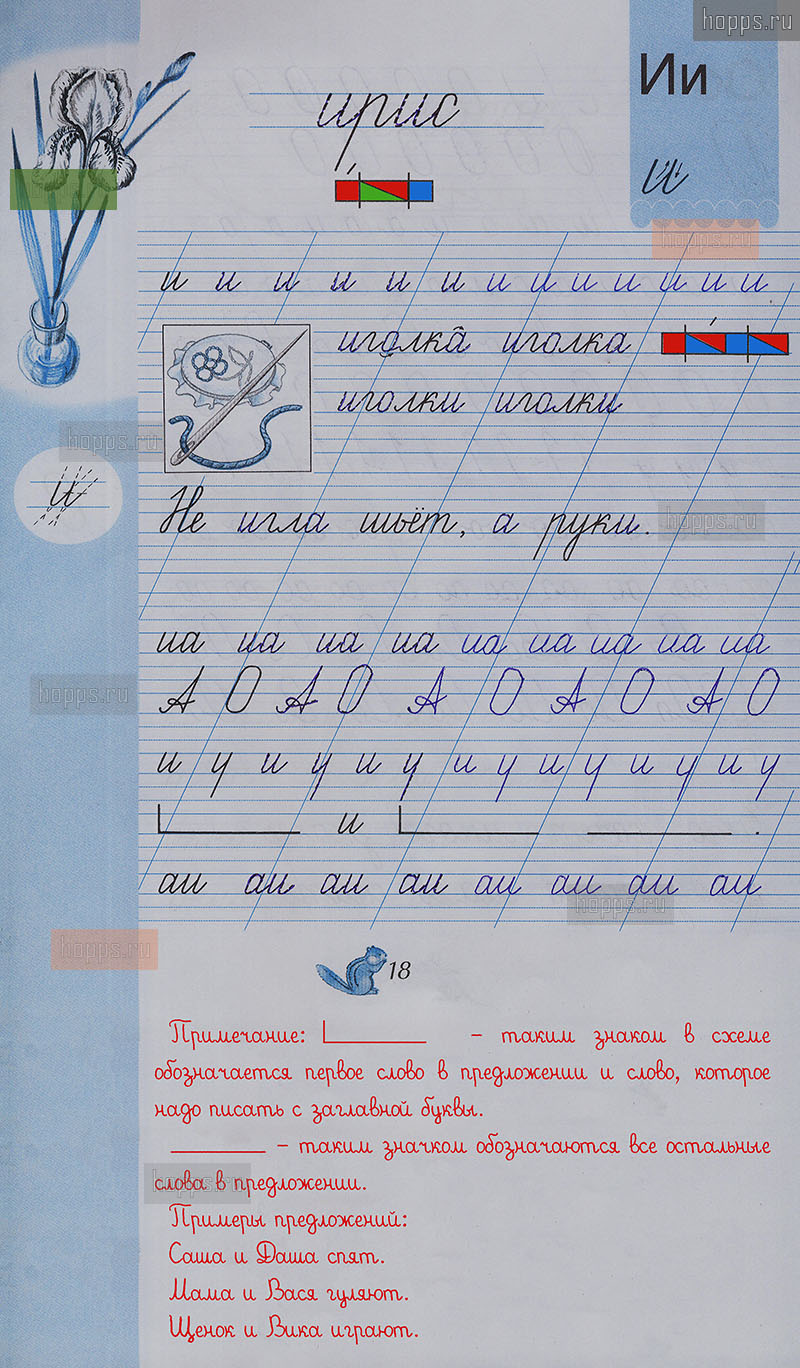 hopps.ru
Ии
ирис
и
и и и и и и и и и и и и и
hopps.ru
иголка иголка
иголки иголки
hopps.ru
и
Не игла шьёт, а руки.
hopps.ru
иа иа иа иа иа иа иа иа иа
hopps.ru
А О А О А О А О А О
и у и у и у и у и у и у и у
и .
аи аи аи аи аи аи аи аи
hopps.ru
hopps.ru
18
Примечание: – таким знаком в схеме
обозначается первое слово в предложении и слово, которое
надо писать с заглавной буквы.
– таким значком обозначаются все остальные
слова в предложении.
hopps.ru
Примеры предложений:
Саша и Даша спят.
Мама и Вася гуляют.
Щенок и Вика играют.